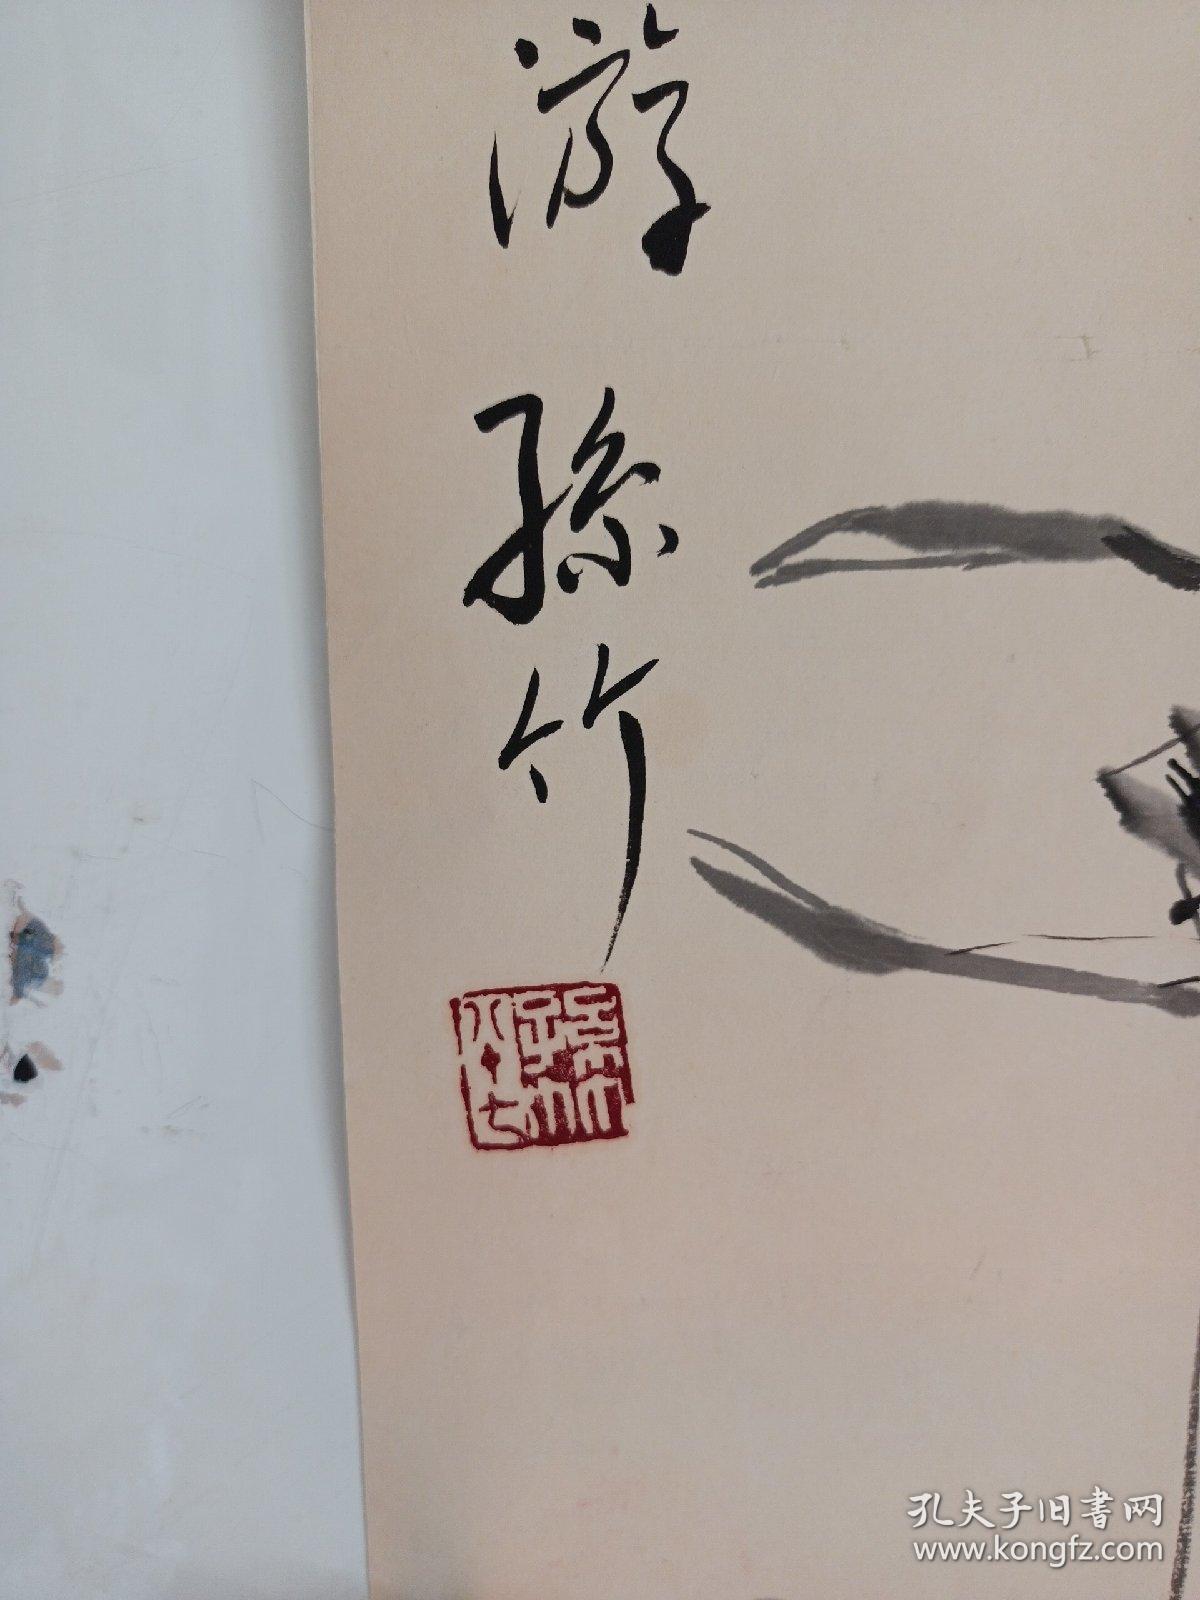 游
孙竹
孙竹
孔夫子旧書网
www.kongfz.com